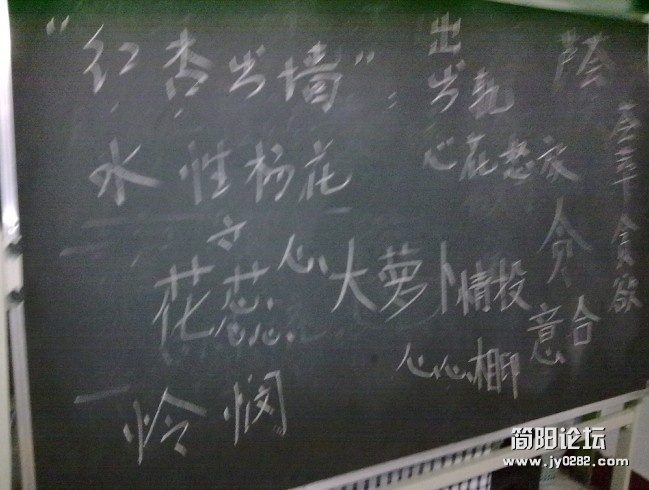 "红杏出墙"：
水性杨花
花蕊
怜悯
心
大萝卜
出
出轨
心花怒
情投
意合
心心相印
贪
芦荟
贪欲
简阳论坛
www.jy0282.com